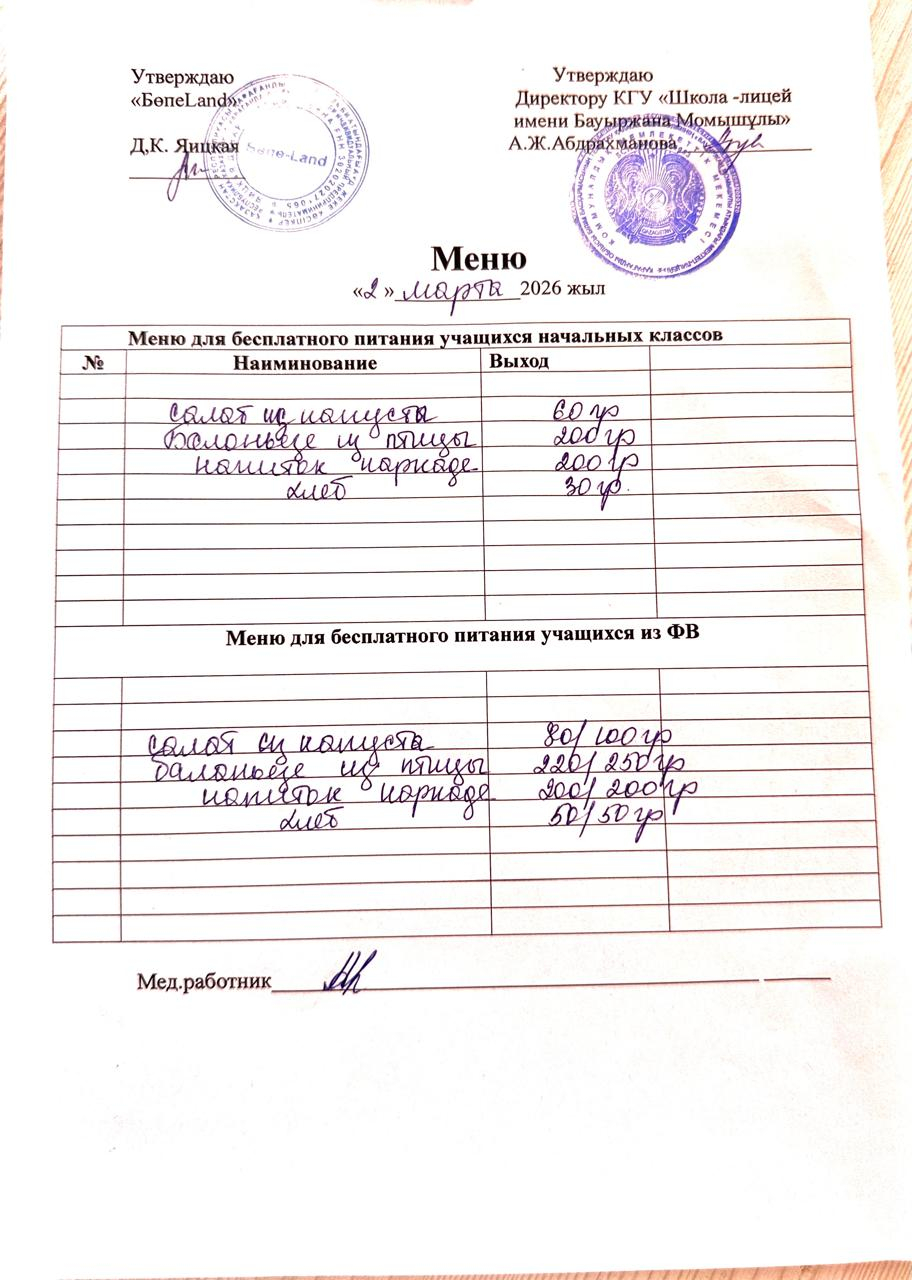 Утверждаю
«БөпеLand»
Д,К. Яицкая
Утверждаю
Директору КГУ «Школа -лицей
имени Бауыржана Момышұлы»
А.Ж.Абдрахманова
Бөпе-Land
Меню
«2 » марта 2026 жыл
Меню для бесплатного питания учащихся начальных классов
№ Наиминование Выход
салат из капуста 60 гр
балоньезе из птицы 200 гр
напиток каркаде 200 гр
хлеб 30 гр.
Меню для бесплатного питания учащихся из ФВ
салат из капуста 80/ 100 гр
балоньезе из птицы 220/ 250 гр
напиток каркаде 200/ 200 гр
хлеб 50/ 50 гр
Мед.работник